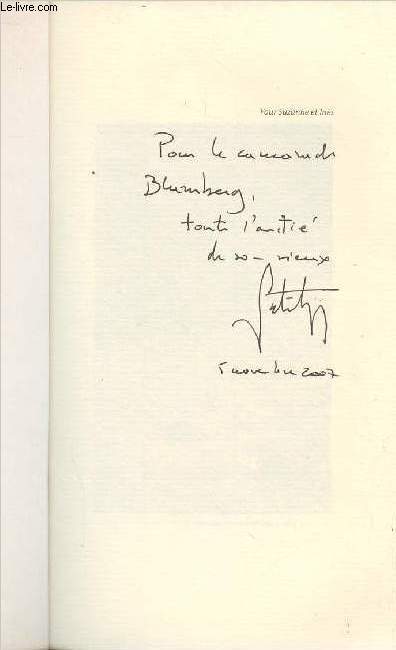 Le-livre.com
Pour Suzanne et Inès
Pour le camarade
Blumberg,
toute l'amitié
de son vieux
5 novembre 2007